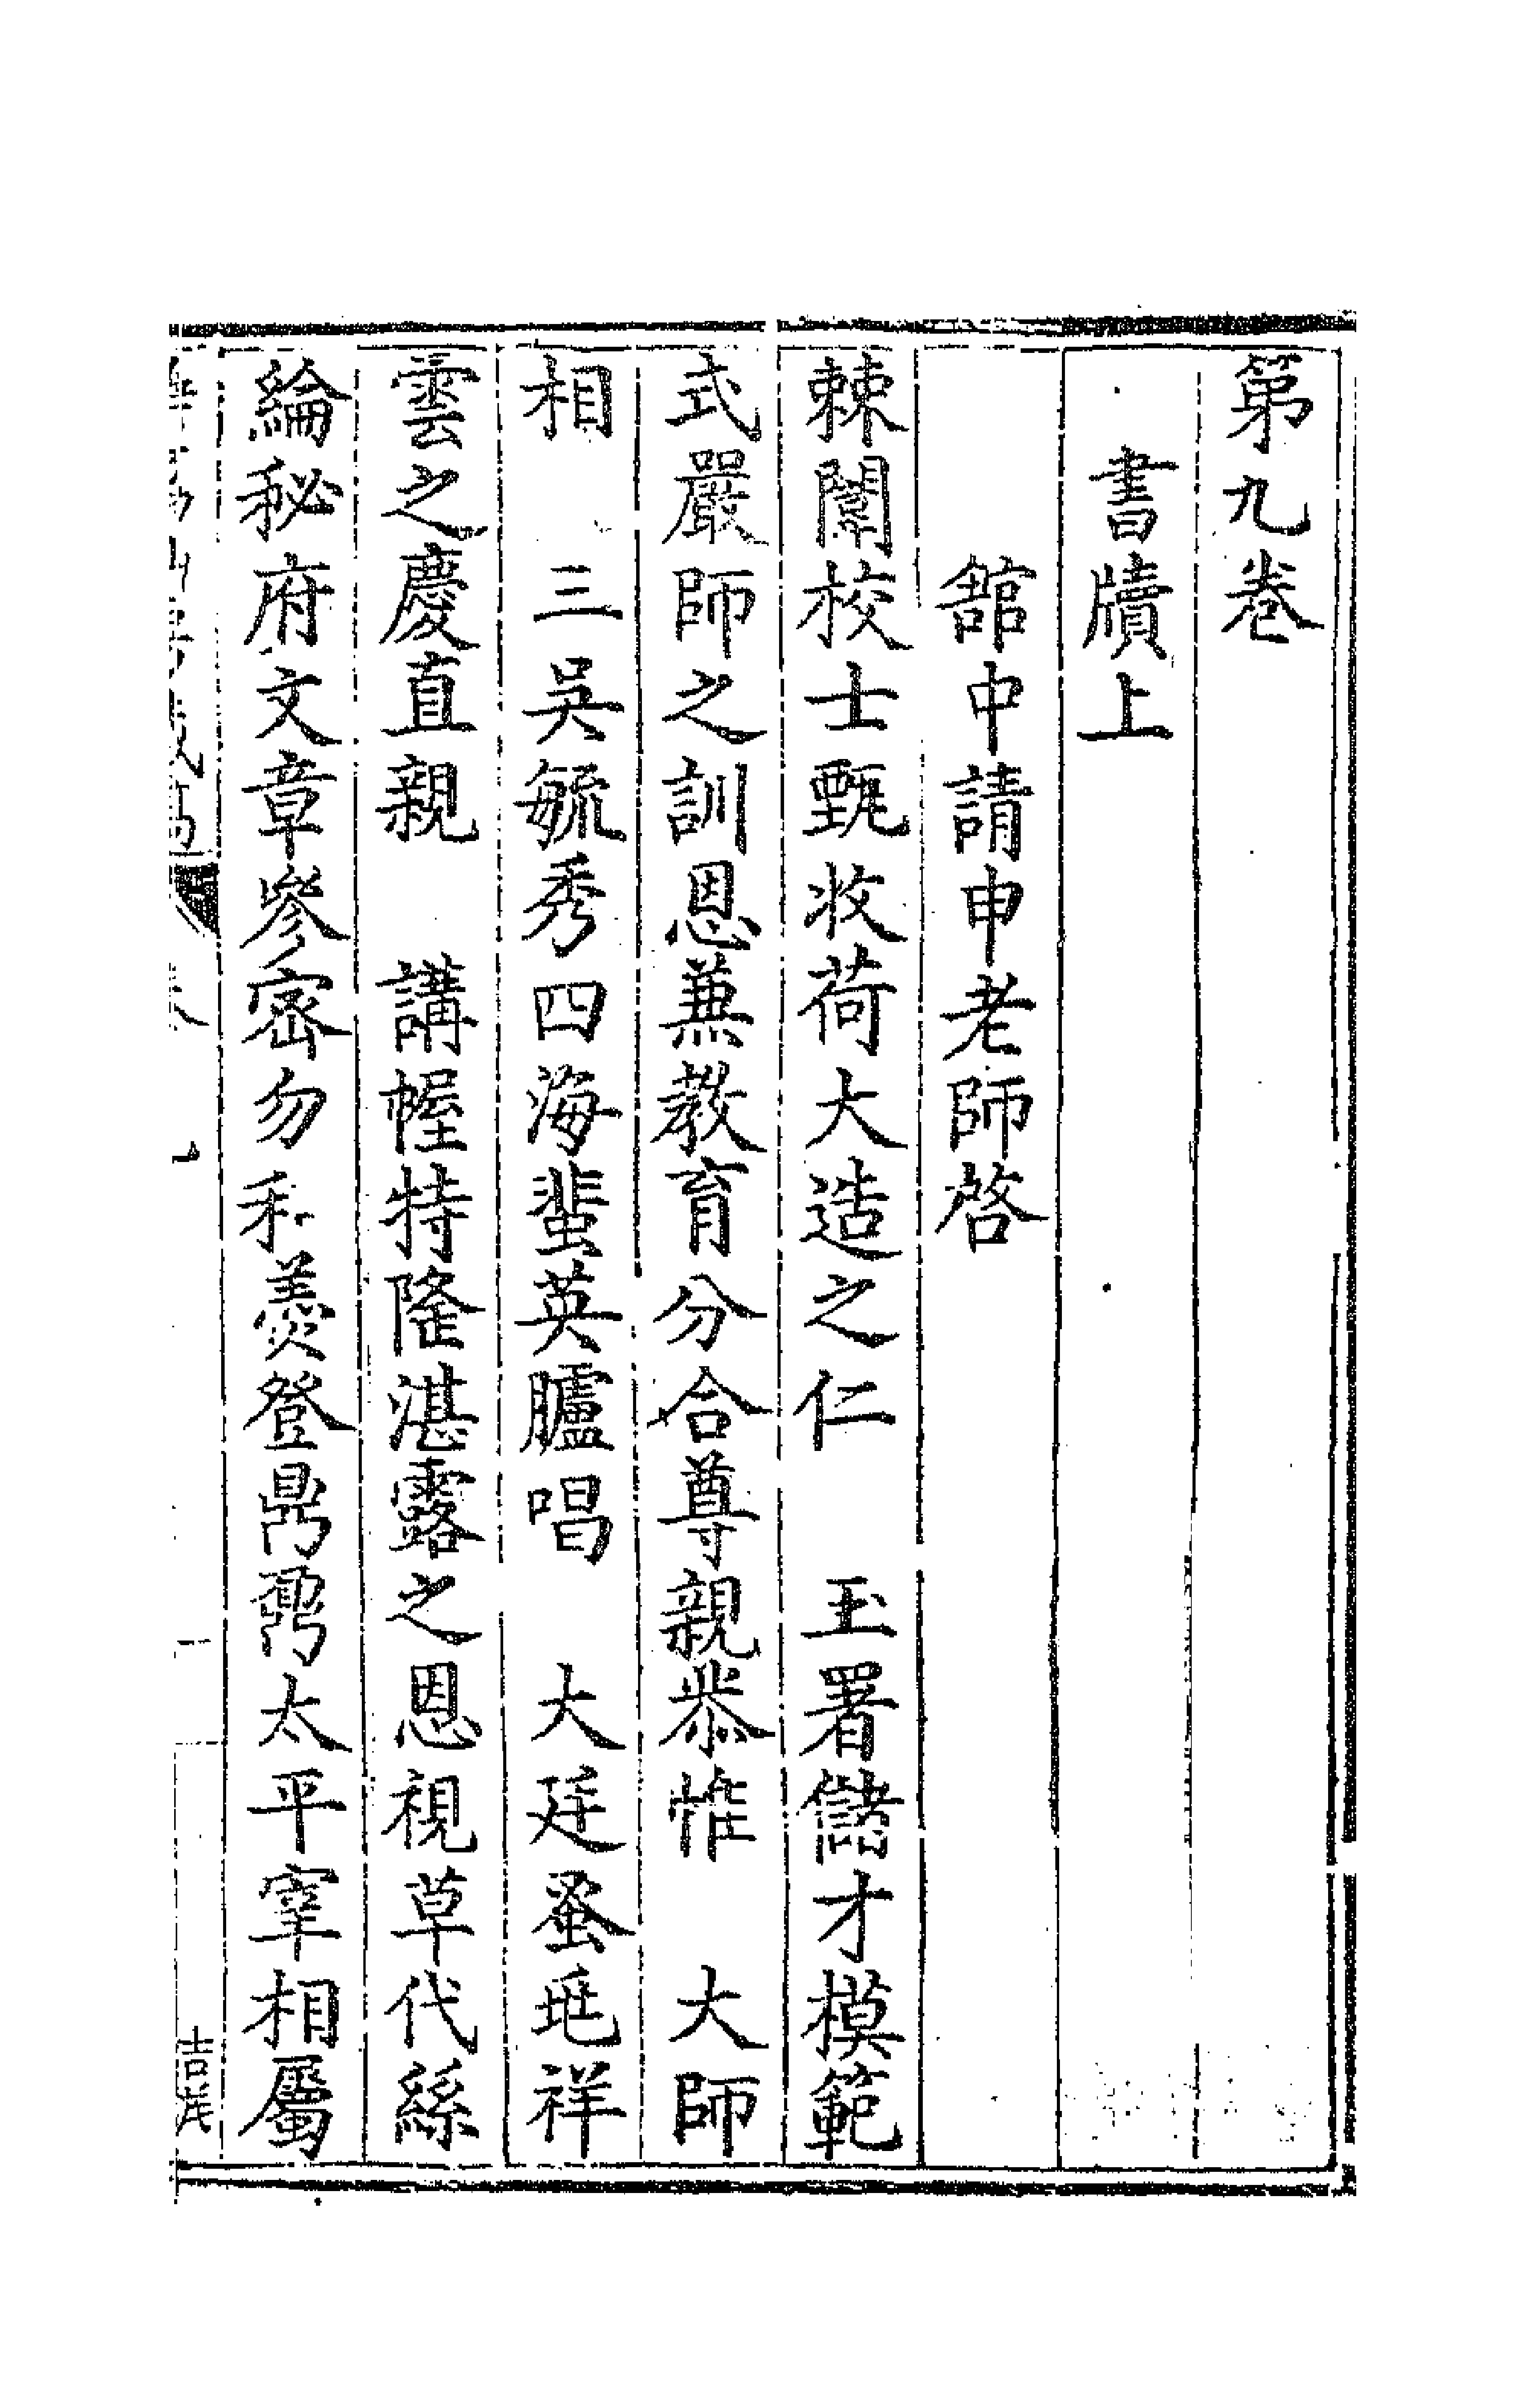 第九卷
書牘上
舘中請申老師啓
棘闈校士甄收荷大造之仁　玉署儲才模範
式嚴師之訓恩兼教育分合尊親恭惟　大師
相　三吳毓秀四海蜚英臚唱　大廷蚤毓祥
雲之慶直親　講幄特隆湛露之恩視草代絲
綸秘府文章參密勿和羹登鼎鼐太平宰相屬